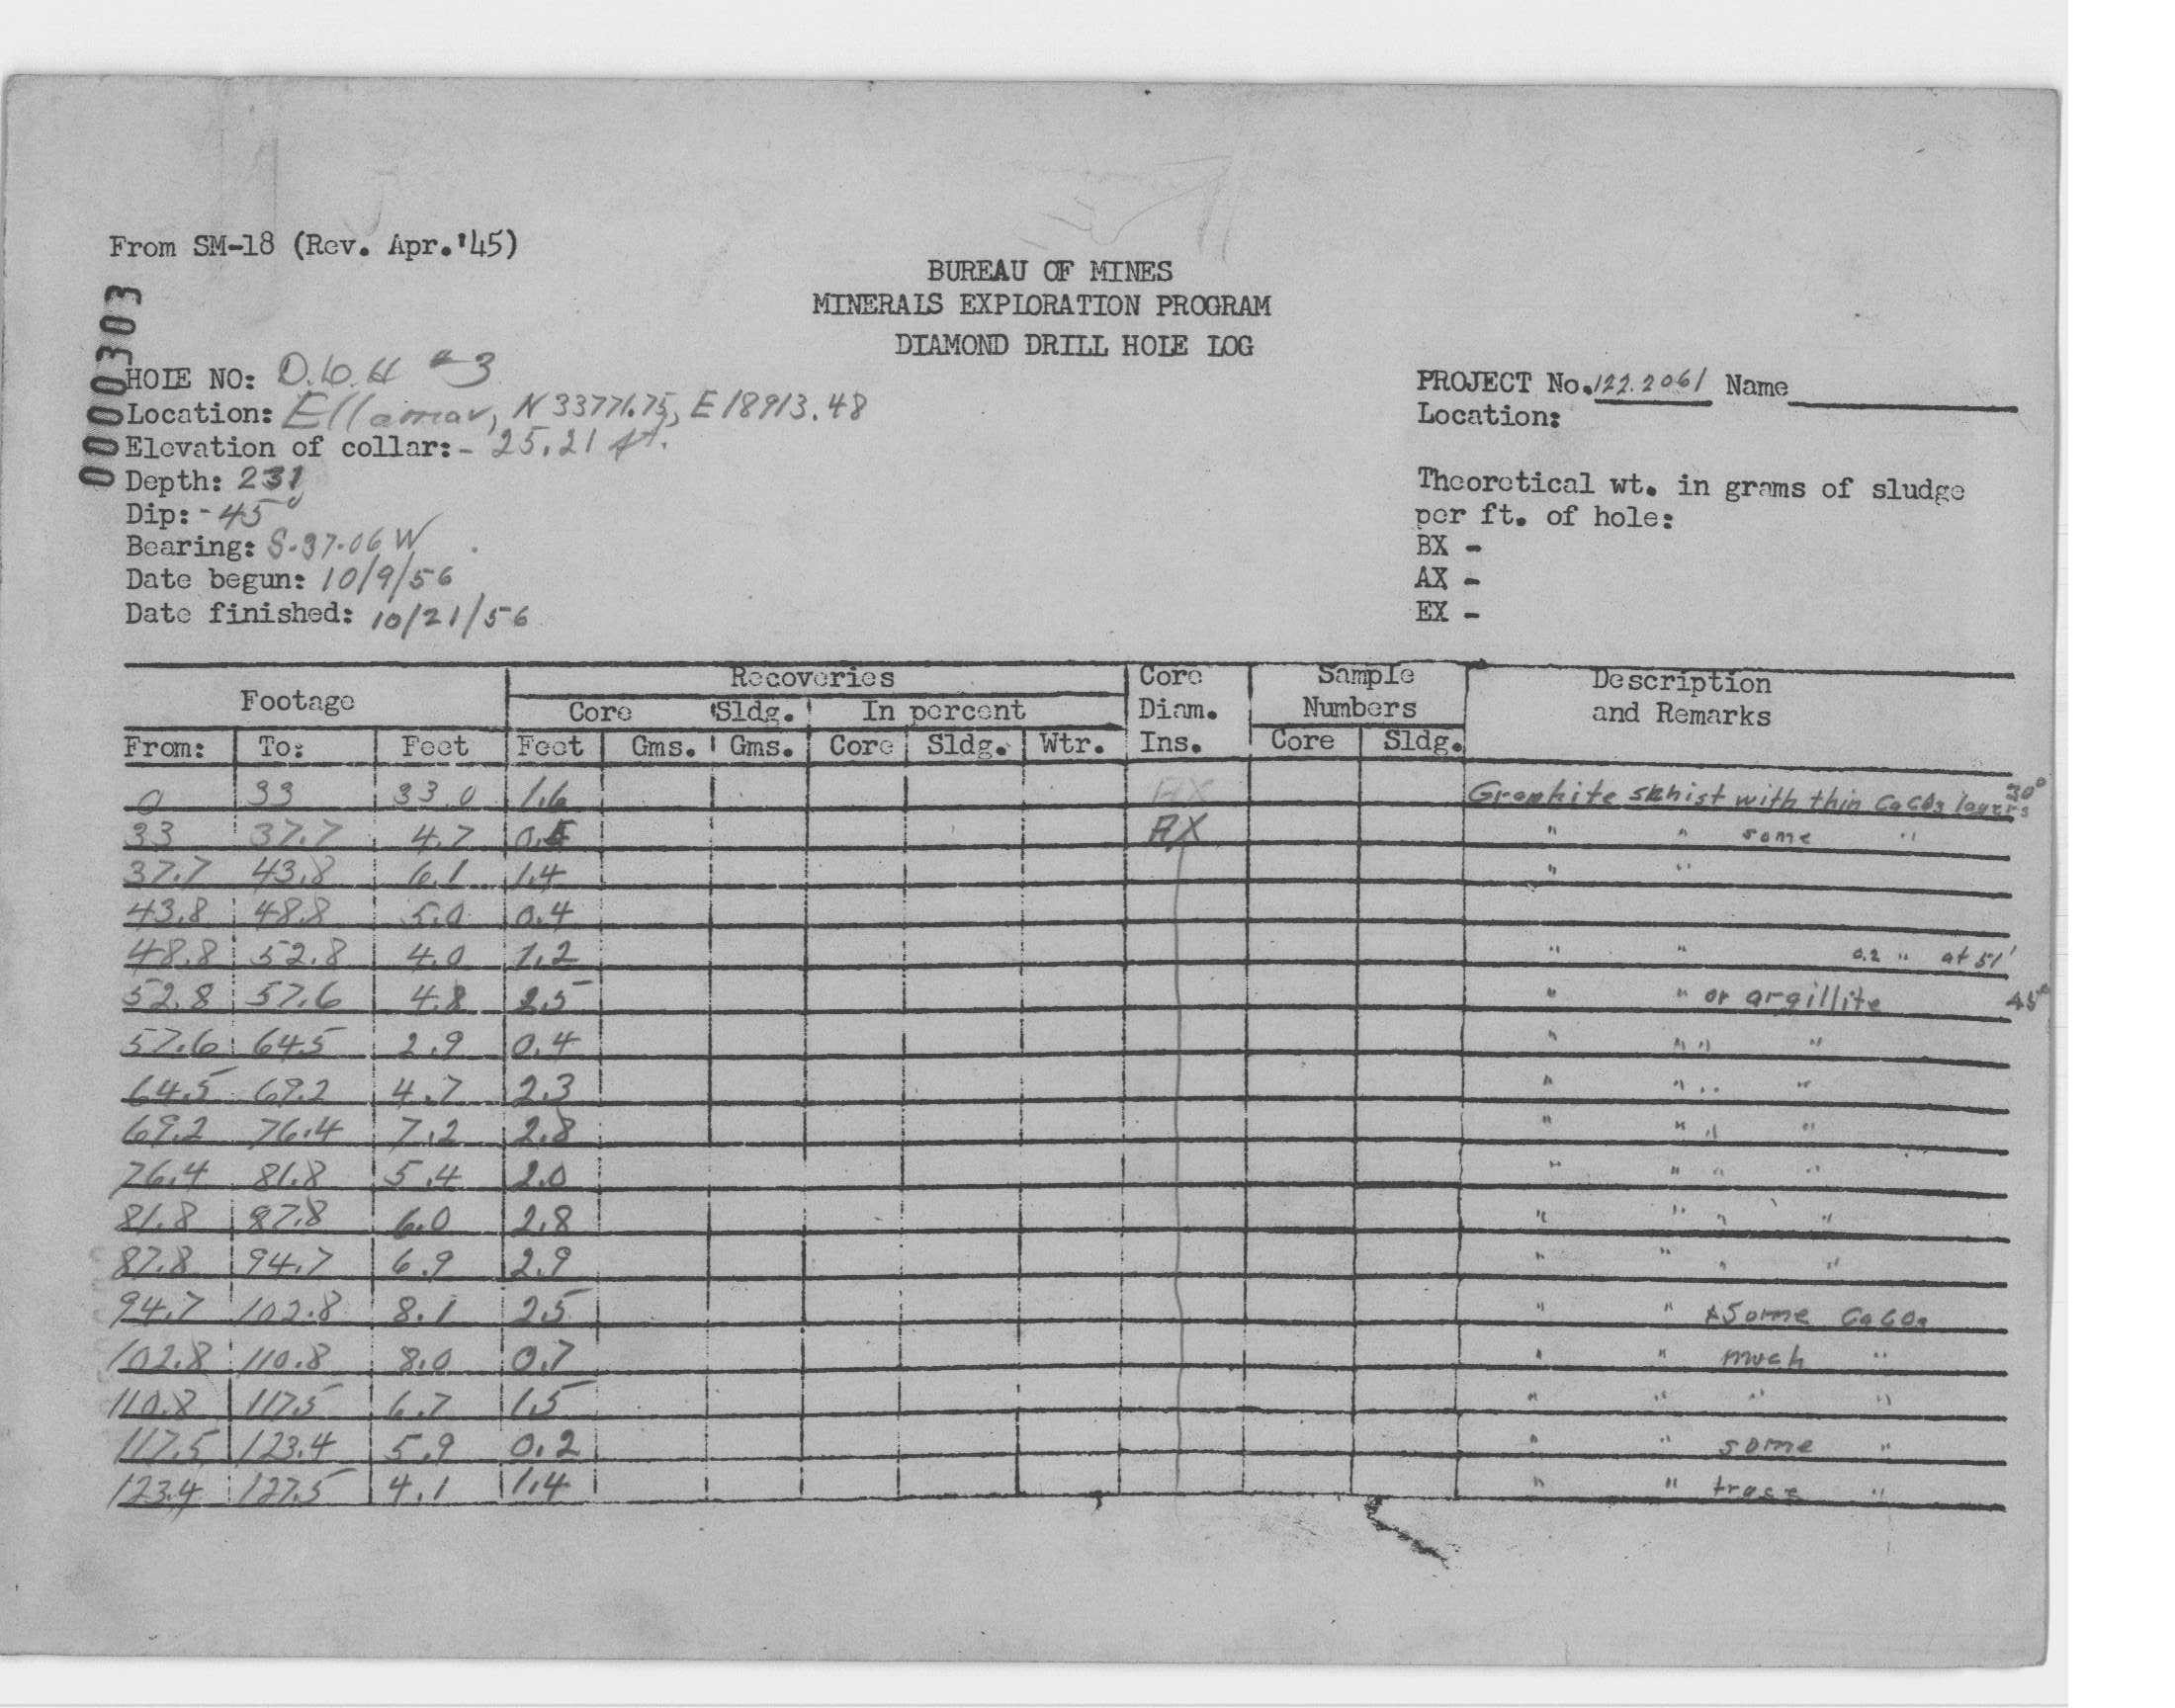 From SM-18 (Rev. Apr.'45)
BUREAU OF MINES
MINERALS EXPLORATION PROGRAM
DIAMOND DRILL HOLE LOG
0000303
HOLE NO: D.D.H #3
PROJECT No. 122.2061 Name
Location: Ellamar, N 33771.75, E 18913.48
Location:
Elevation of collar: - 25.21 ft.
Depth: 231
Theoretical wt. in grams of sludge
Dip: -45°
per ft. of hole:
Bearing: S-37-06 W
BX -
Date begun: 10/9/56
AX -
Date finished: 10/21/56
EX -
Footage Recoveries Core Sample Description
Core Sldg. In percent Diam. Numbers and Remarks
From: To: Feet Feet Gms. Gms. Core Sldg. Wtr. Ins. Core Sldg.
0 33 33.0 1.6 AX Graphite schist with thin CaCO3 layers 30°
33 37.7 4.7 0.5 AX " " some "
37.7 43.8 6.1 1.4 " "
43.8 48.8 5.0 0.4
48.8 52.8 4.0 1.2 " " 0.2 " at 51'
52.8 57.6 4.8 2.5 " " or argillite 45°
57.6 64.5 2.9 0.4 " " " "
64.5 69.2 4.7 2.3 " " " "
69.2 76.4 7.2 2.8 " " " "
76.4 81.8 5.4 2.0 " " " "
81.8 87.8 6.0 2.8 " " " "
87.8 94.7 6.9 2.9 " " " "
94.7 102.8 8.1 2.5 " " & Some CaCO3
102.8 110.8 8.0 0.7 " " much "
110.8 117.5 6.7 1.5 " " " "
117.5 123.4 5.9 0.2 " " some "
123.4 127.5 4.1 1.4 " " trace "